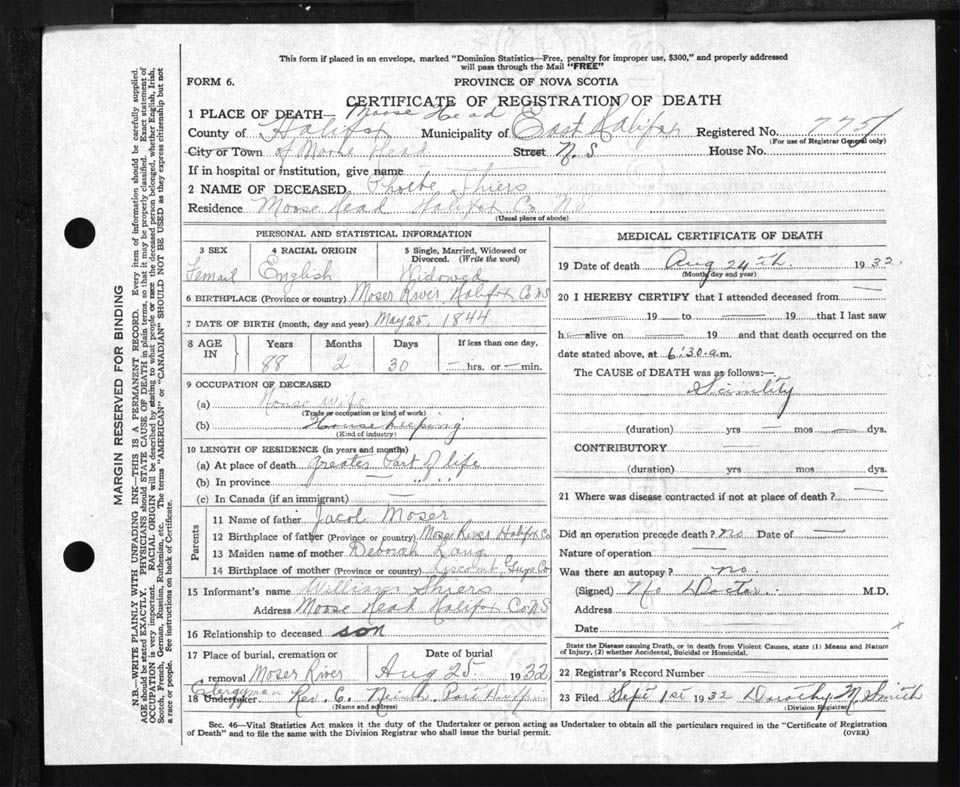 This form if placed in an envelope, marked "Dominion Statistics—Free, penalty for improper use, $300," and properly addressed
will pass through the Mail "FREE"
FORM 6.
PROVINCE OF NOVA SCOTIA
CERTIFICATE OF REGISTRATION OF DEATH
1 PLACE OF DEATH— Moose Head
County of Halifax Municipality of East Halifax Registered No. 7751
(For use of Registrar General only)
City or Town of Moose Head Street N.S House No.
If in hospital or institution, give name
2 NAME OF DECEASED Phoebe Shiers
Residence Moose Head Halifax Co N.S
(Usual place of abode)
PERSONAL AND STATISTICAL INFORMATION
3 SEX 4 RACIAL ORIGIN 5 Single, Married, Widowed or
Divorced. (Write the word)
Femail English Widowed
6 BIRTHPLACE (Province or country) Moser River, Halifax Co N S
7 DATE OF BIRTH (month, day and year) May 25, 1844
8 AGE IN Years Months Days If less than one day,
88 2 30 — hrs. or — min.
9 OCCUPATION OF DECEASED
(a) House Wife
(Trade or occupation or kind of work)
(b) House keeping
(Kind of industry)
10 LENGTH OF RESIDENCE (in years and months)
(a) At place of death greater Part of life
(b) In province — " " " "
(c) In Canada (if an immigrant) —
Parents
11 Name of father Jacob Moser
12 Birthplace of father (Province or country) Moser River Halifax Co
13 Maiden name of mother Deborah Lang
14 Birthplace of mother (Province or country) Liscomb Guys Co
15 Informant's name William Shiers
Address Moose Head Halifax Co N S
16 Relationship to deceased son
17 Place of burial, cremation or Date of burial
removal Moser River Aug 25 1932
Clergyman
18 Undertaker Rev. C. Port Dufferin
(Name and address)
MEDICAL CERTIFICATE OF DEATH
19 Date of death Aug 24th. 1932.
(Month, day and year)
20 I HEREBY CERTIFY that I attended deceased from —
— 19 — to — 19 that I last saw
h— alive on — 19 and that death occurred on the
date stated above, at 6:30 a.m.
The CAUSE of DEATH was as follows:—
Scinility
(duration) — yrs — mos — dys.
CONTRIBUTORY —
(duration) — yrs. — mos. — dys.
21 Where was disease contracted if not at place of death? —
Did an operation precede death? No Date of —
Nature of operation —
Was there an autopsy? no.
(Signed) No Doctor M.D.
Address
Date x
State the Disease causing Death, or in death from Violent Causes, state (1) Means and Nature
of Injury, (2) whether Accidental, Suicidal or Homicidal.
22 Registrar's Record Number
23 Filed Sept 1st 1932 Dorothy M. Smith
(Division Registrar)
Sec. 46—Vital Statistics Act makes it the duty of the Undertaker or person acting as Undertaker to obtain all the particulars required in the "Certificate of Registration
of Death" and to file the same with the Division Registrar who shall issue the burial permit.
(OVER)
MARGIN RESERVED FOR BINDING
N.B.—WRITE PLAINLY WITH UNFADING INK—THIS IS A PERMANENT RECORD. Every item of information should be carefully supplied.
AGE should be stated EXACTLY. PHYSICIANS should STATE CAUSE OF DEATH in plain terms, so that it may be properly classified. Exact statement of
OCCUPATION is very important. RACIAL ORIGIN will be described by stating to what people or race the deceased person belonged, whether English, Irish,
Scotch, French, German, Russian, Ruthenian, etc. The terms "AMERICAN" or "CANADIAN" SHOULD NOT BE USED as they express citizenship but not
a race or people. See instructions on back of Certificate.